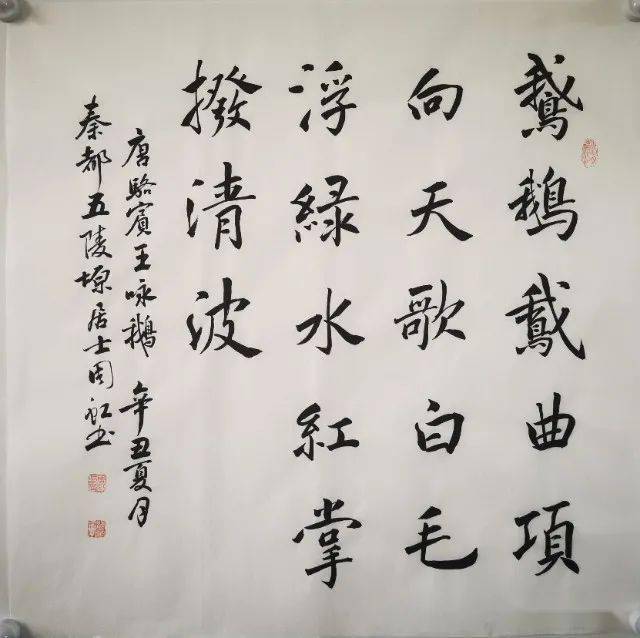 鵞鵝䳘曲項
向天歌白毛
浮緑水紅掌
撥清波
唐駱賓王咏鵝 辛丑夏月
秦都五陵塬居士周书